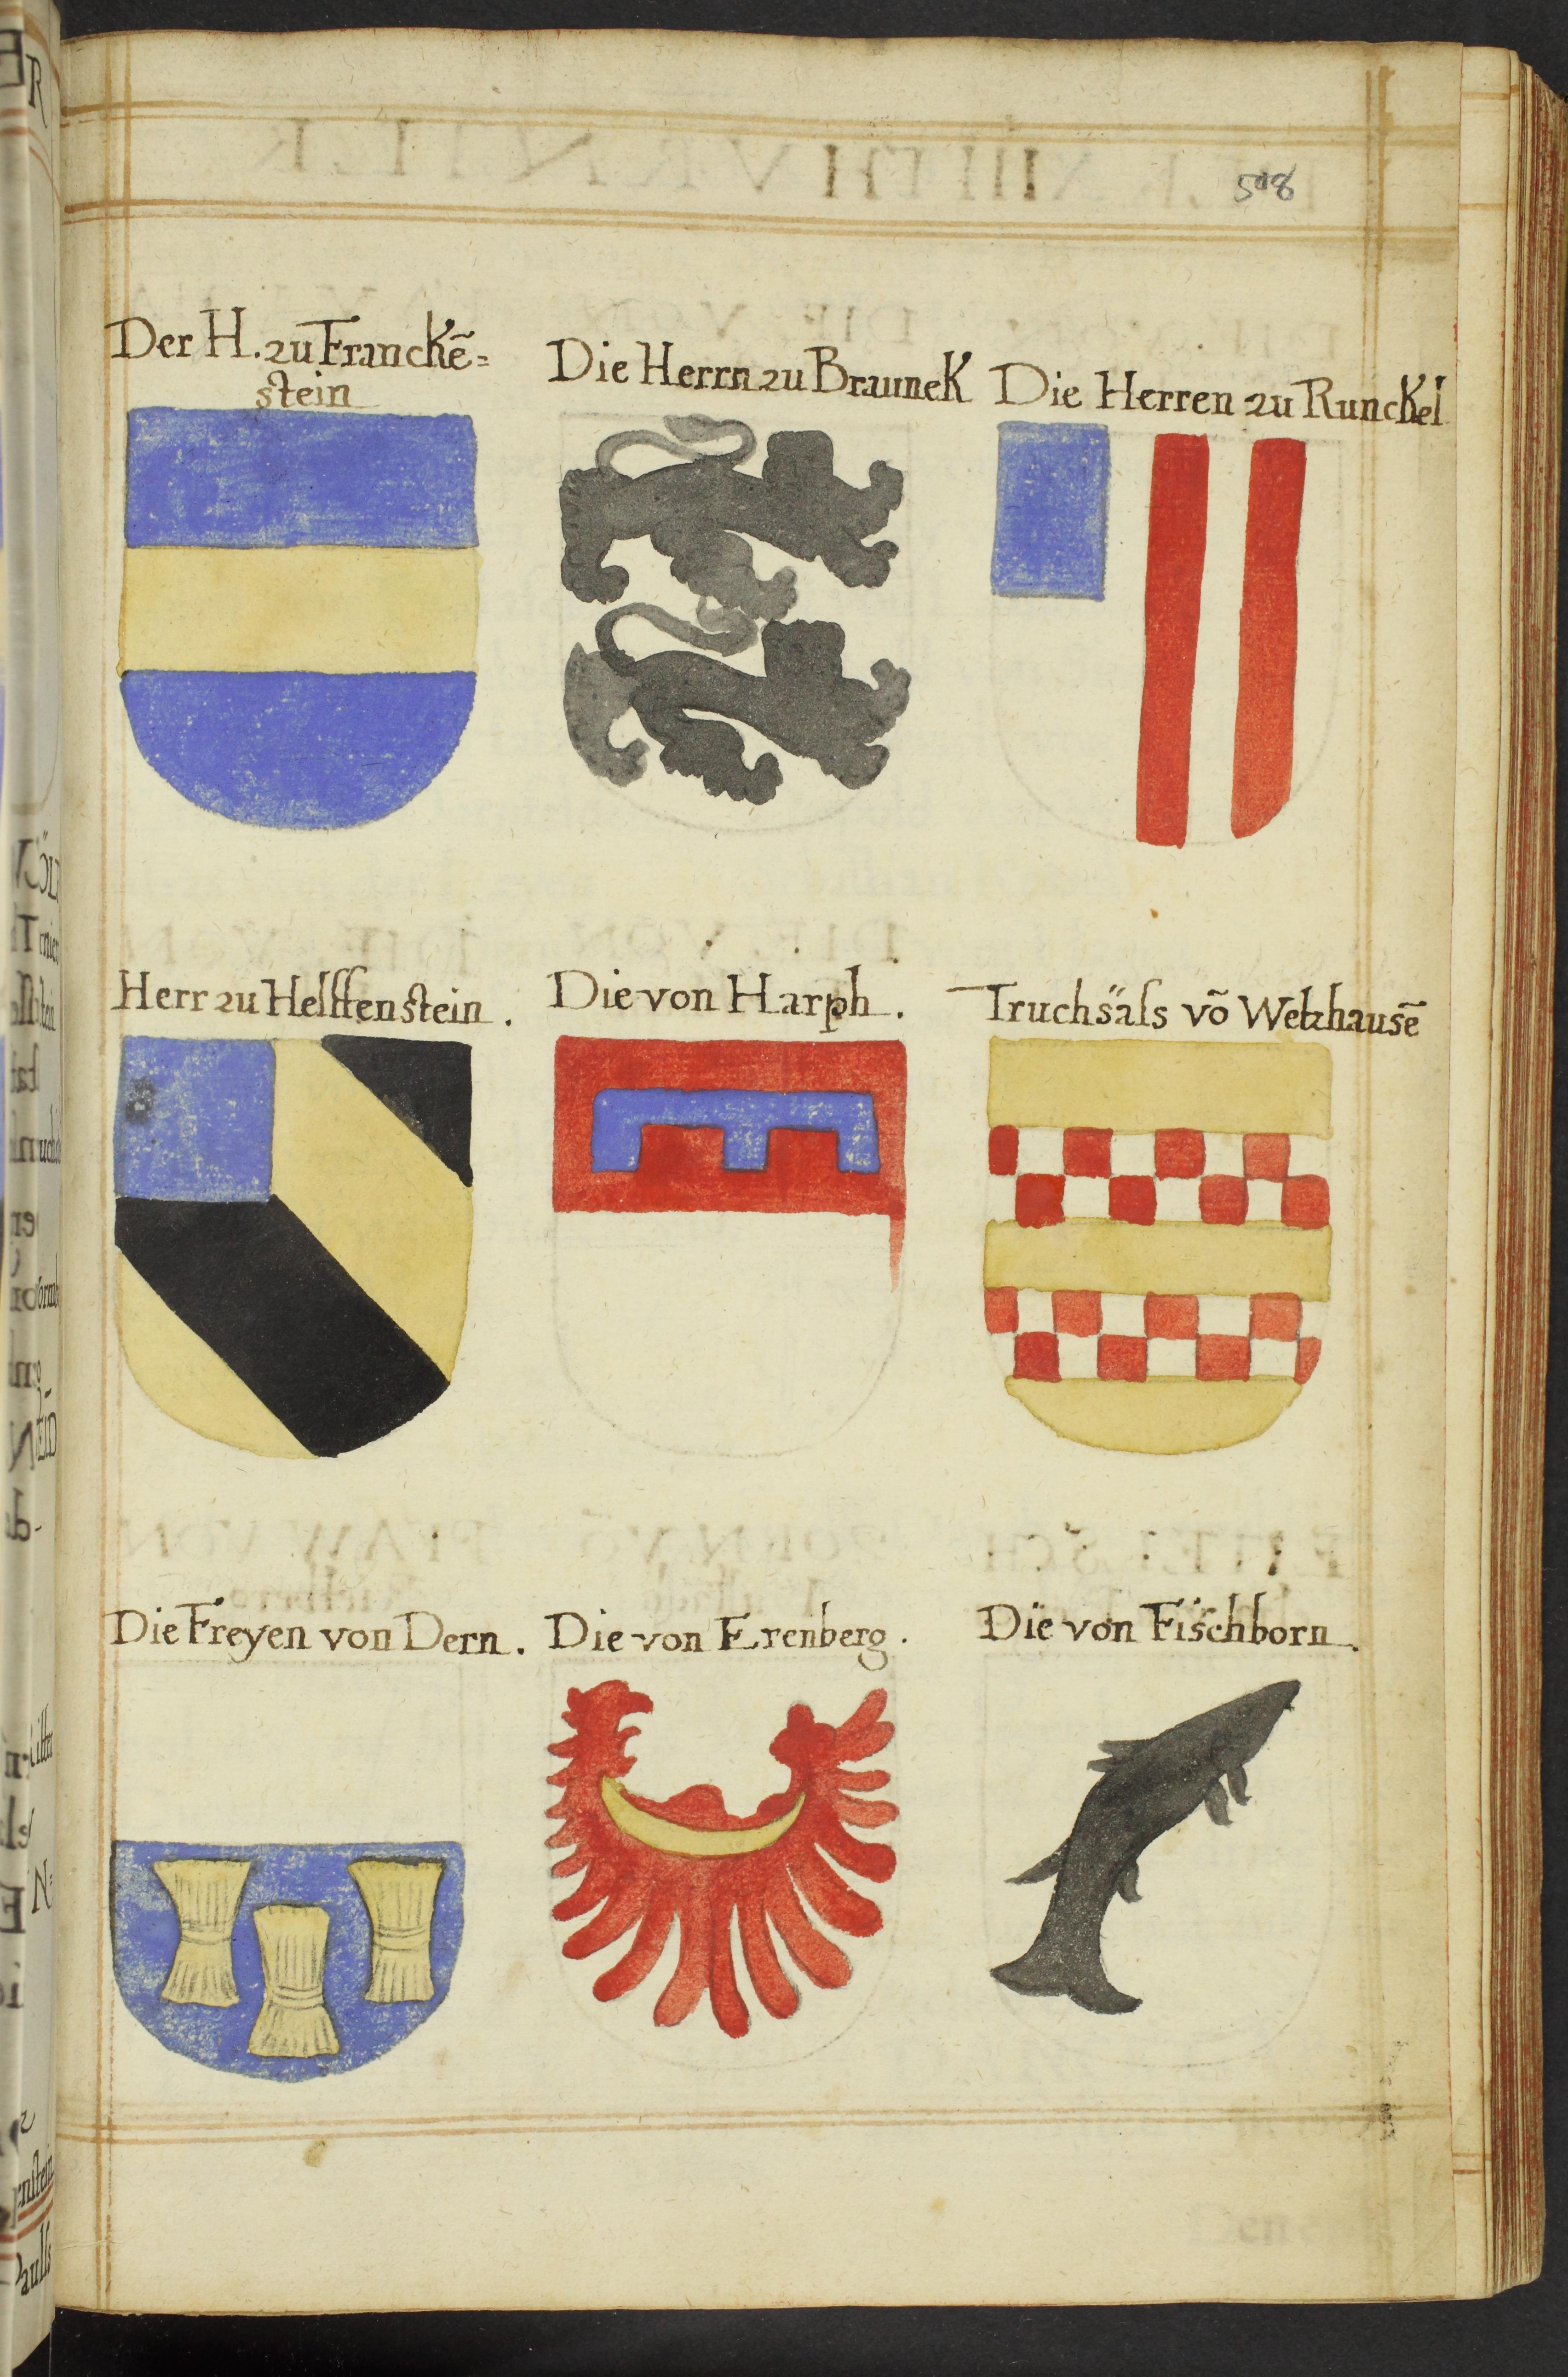 508
Der H. zu Franckē=
stein
Die Herrn zu Brauneck
Die Herren zu Runckel
Herr zu Helffenstein.
Die von Harph.
Truchsäss võ Wetzhausē
Die Freyen von Dern.
Die von Erenberg.
Die von Fischborn.